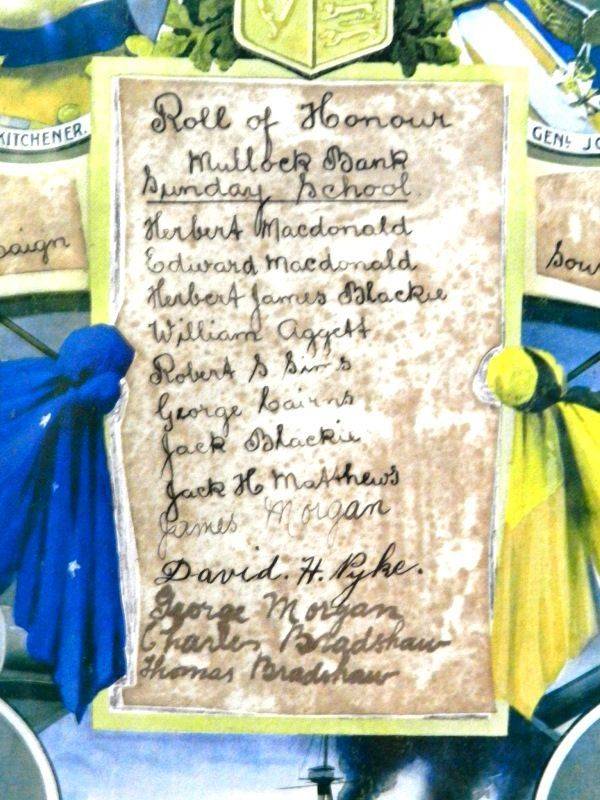 KITCHENER.
GENL JO
Roll of Honour
Mullock Bank
Sunday School.
paign
Sou
Herbert Macdonald
Edward Macdonald
Herbert James Blackie
William Aggett
Robert S Sims
George Cairns
Jack Blackie
Jack H Matthews
James Morgan
David. H. Pyke.
George Morgan
Charles Bradshaw
Thomas Bradshaw